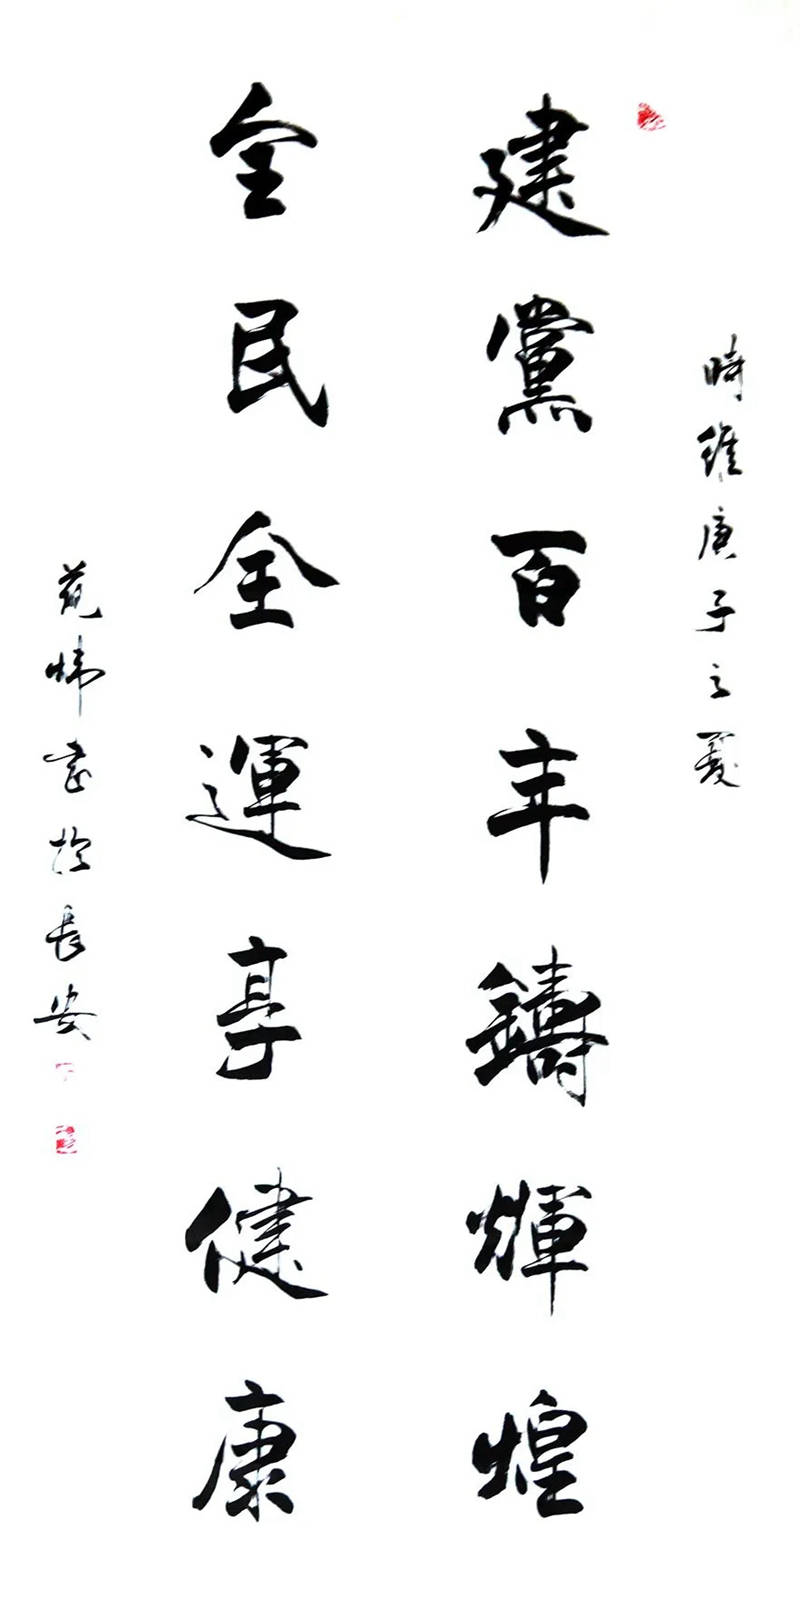 時維庚子之夏
建黨百年鑄輝煌
全民全運享健康
范煒書於長安